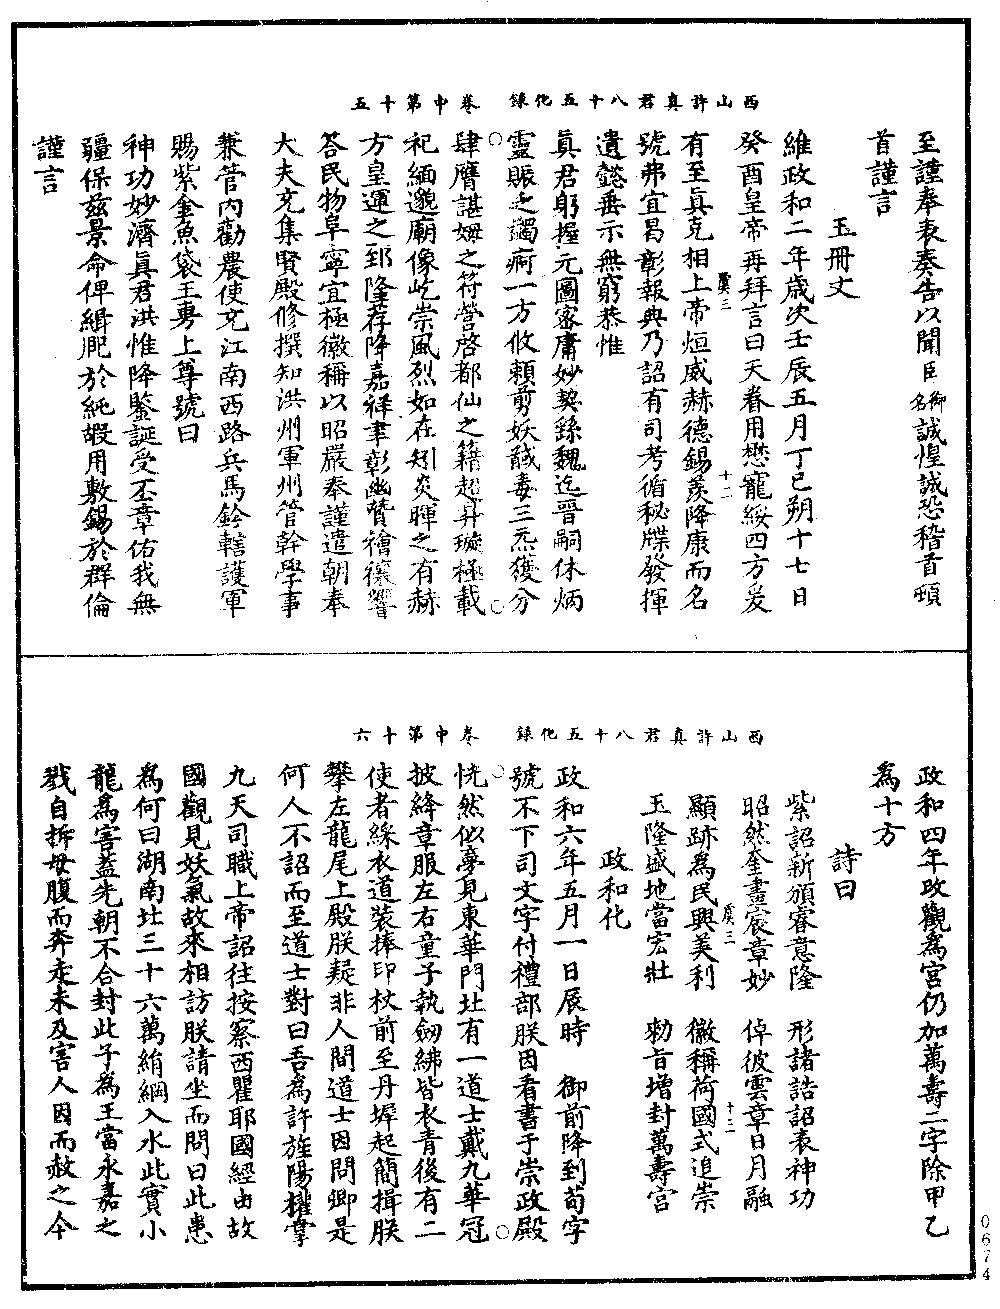 西山許真君八十五化錄　卷中第十五
至謹奉表奏告以聞臣御名誠惶誠恐稽首頓
首謹言
玉冊文
維政和二年歲次壬辰五月丁巳朔十七日
癸酉皇帝再拜言曰天眷用懋寵綏四方爰
虞二
十二
有至眞克相上帝烜威赫德錫羨降康而名
號弗宜曷彰報典乃詔有司考循秘牒發揮
遺懿垂示無窮恭惟
眞君躬握元圖密庸妙契繇魏迄晉嗣休炳
靈賑乏蠲痾一方攸賴剪妖馘毒三炁獲分
肆膺諶姆之符營啓都仙之籍超昇璇極載
祀緬邈廟像屹崇風烈如在矧炎暉之有赫
方皇運之郅隆荐降嘉祥聿彰幽贊禬禳響
答民物阜寧宜極徽稱以昭嚴奉謹遣朝奉
大夫充集賢殿修撰知洪州軍州管幹學事
兼管內勸農使充江南西路兵馬鈐轄護軍
賜紫金魚袋王勇上尊號曰
神功妙濟眞君洪惟降鑒誕受丕章佑我無
疆保茲景命俾緝熙於純嘏用敷錫於群倫
謹言
西山許真君八十五化錄　卷中第十六
政和四年改觀爲宮仍加萬壽二字除甲乙
爲十方
詩曰
紫詔新頒睿意隆　形諸誥詔表神功
昭然奎畫宸章妙　倬彼雲章日月融
虞三
十三
顯跡爲民興美利　徽稱荷國式追崇
玉隆盛地當宏壯　勑旨增封萬壽宮
政和化
政和六年五月一日辰時　御前降到荀字
號不下司文字付禮部朕因看書于崇政殿
恍然似夢見東華門北有一道士戴九華冠
披絳章服左右童子執劒紼皆衣青後有二
使者綠衣道裝捧印杖前至丹墀起簡揖朕
攀左龍尾上殿朕疑非人間道士因問卿是
何人不詔而至道士對曰吾爲許旌陽權掌
九天司職上帝詔往按察西瞿耶國經由故
國觀見妖氣故來相訪朕請坐而問曰此患
爲何曰湖南北三十六萬絹綱入水此實小
龍爲害蓋先朝不合封此子爲王當永嘉之
戮自拆母腹而奔走未及害人因而赦之今
0674